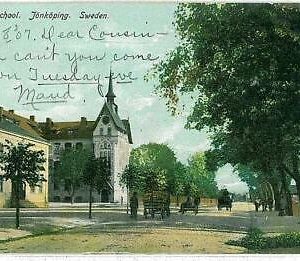 School. Jönköping. Sweden.
8'07. Dear Cousin-
can't you come
on Tuesday eve
Maud